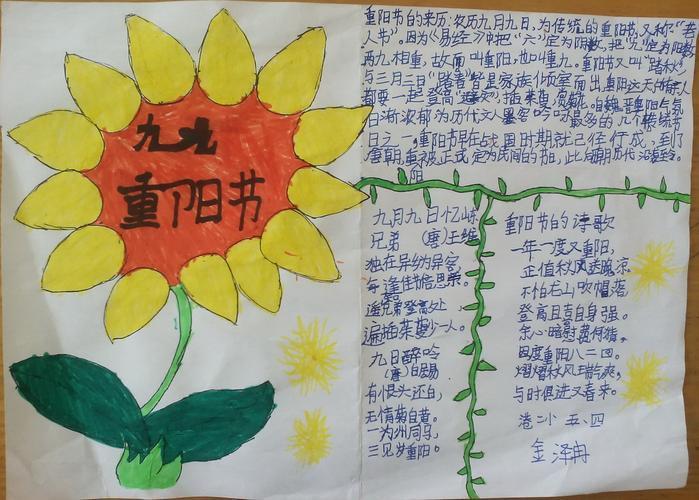 九九
重阳节
重阳节的来历:农历九月九日,为传统的重阳节,又称“老
人节”。因为《易经》中把“六”定为阴数,把“九”定为阳数
两九相重,故而叫重阳,也叫重九。重阳节又叫“踏秋”
与三月三日“踏春”皆是家族倾室而出,重阳这天所有人
都要一起登高
日渐浓郁为历代文人墨客吟咏最多的几个传统节
日之一,重阳节早在战国时期就已经行成,至了
唐朝,重阳被正式定为民间的节日,此后朝历代沿
九月九日忆
兄弟 (唐)王维
独在异乡为异客
每逢佳节倍思亲。
遥兄弟登高处
遍插茱萸少一人。
九日醉吟
(唐)白居易
有恨头还白,
无情菊自黄。
一为州司马,
三见岁重阳。
重阳节的诗歌
一年一度又重阳,
正值秋风透晚凉
不怕龙山吹帽落
登高且喜自身强。
余心暗
四度重阳八二回。
熠熠秋风
与时俱进又春来。
港二小 五、四
金泽冉